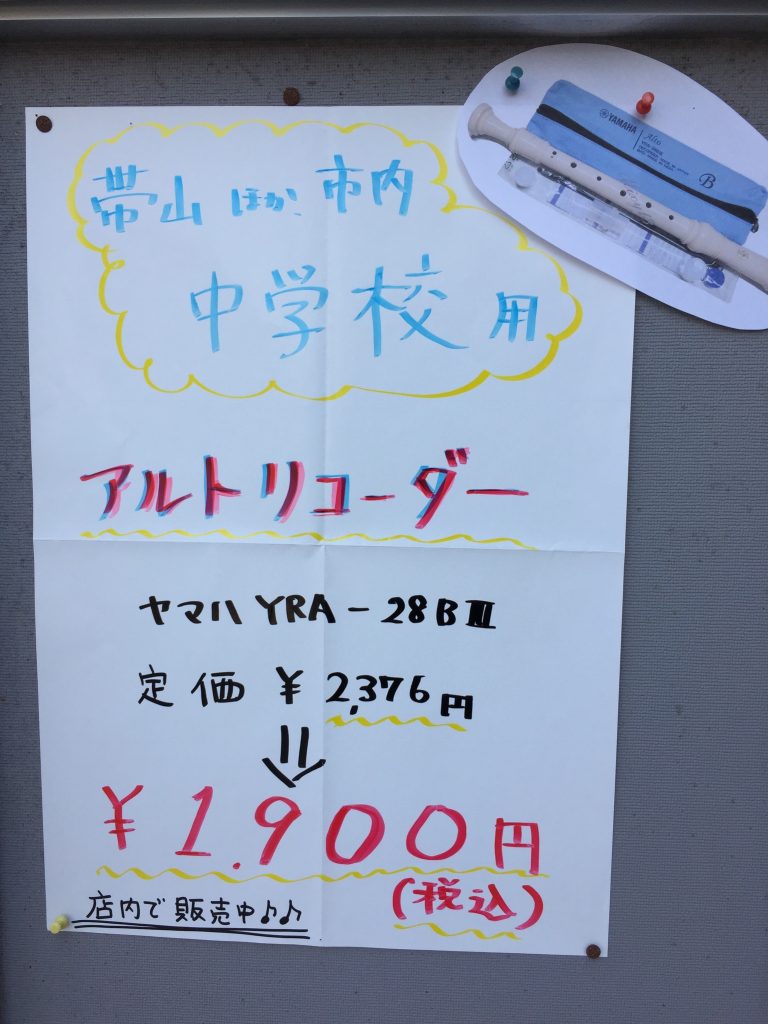 帯山ほか、市内
中学校用
アルトリコーダー
ヤマハ YRA-28BⅢ
定価 ¥2,376円
¥1,900円
(税込)
店内で販売中♪♪
YAMAHA
Alto
B